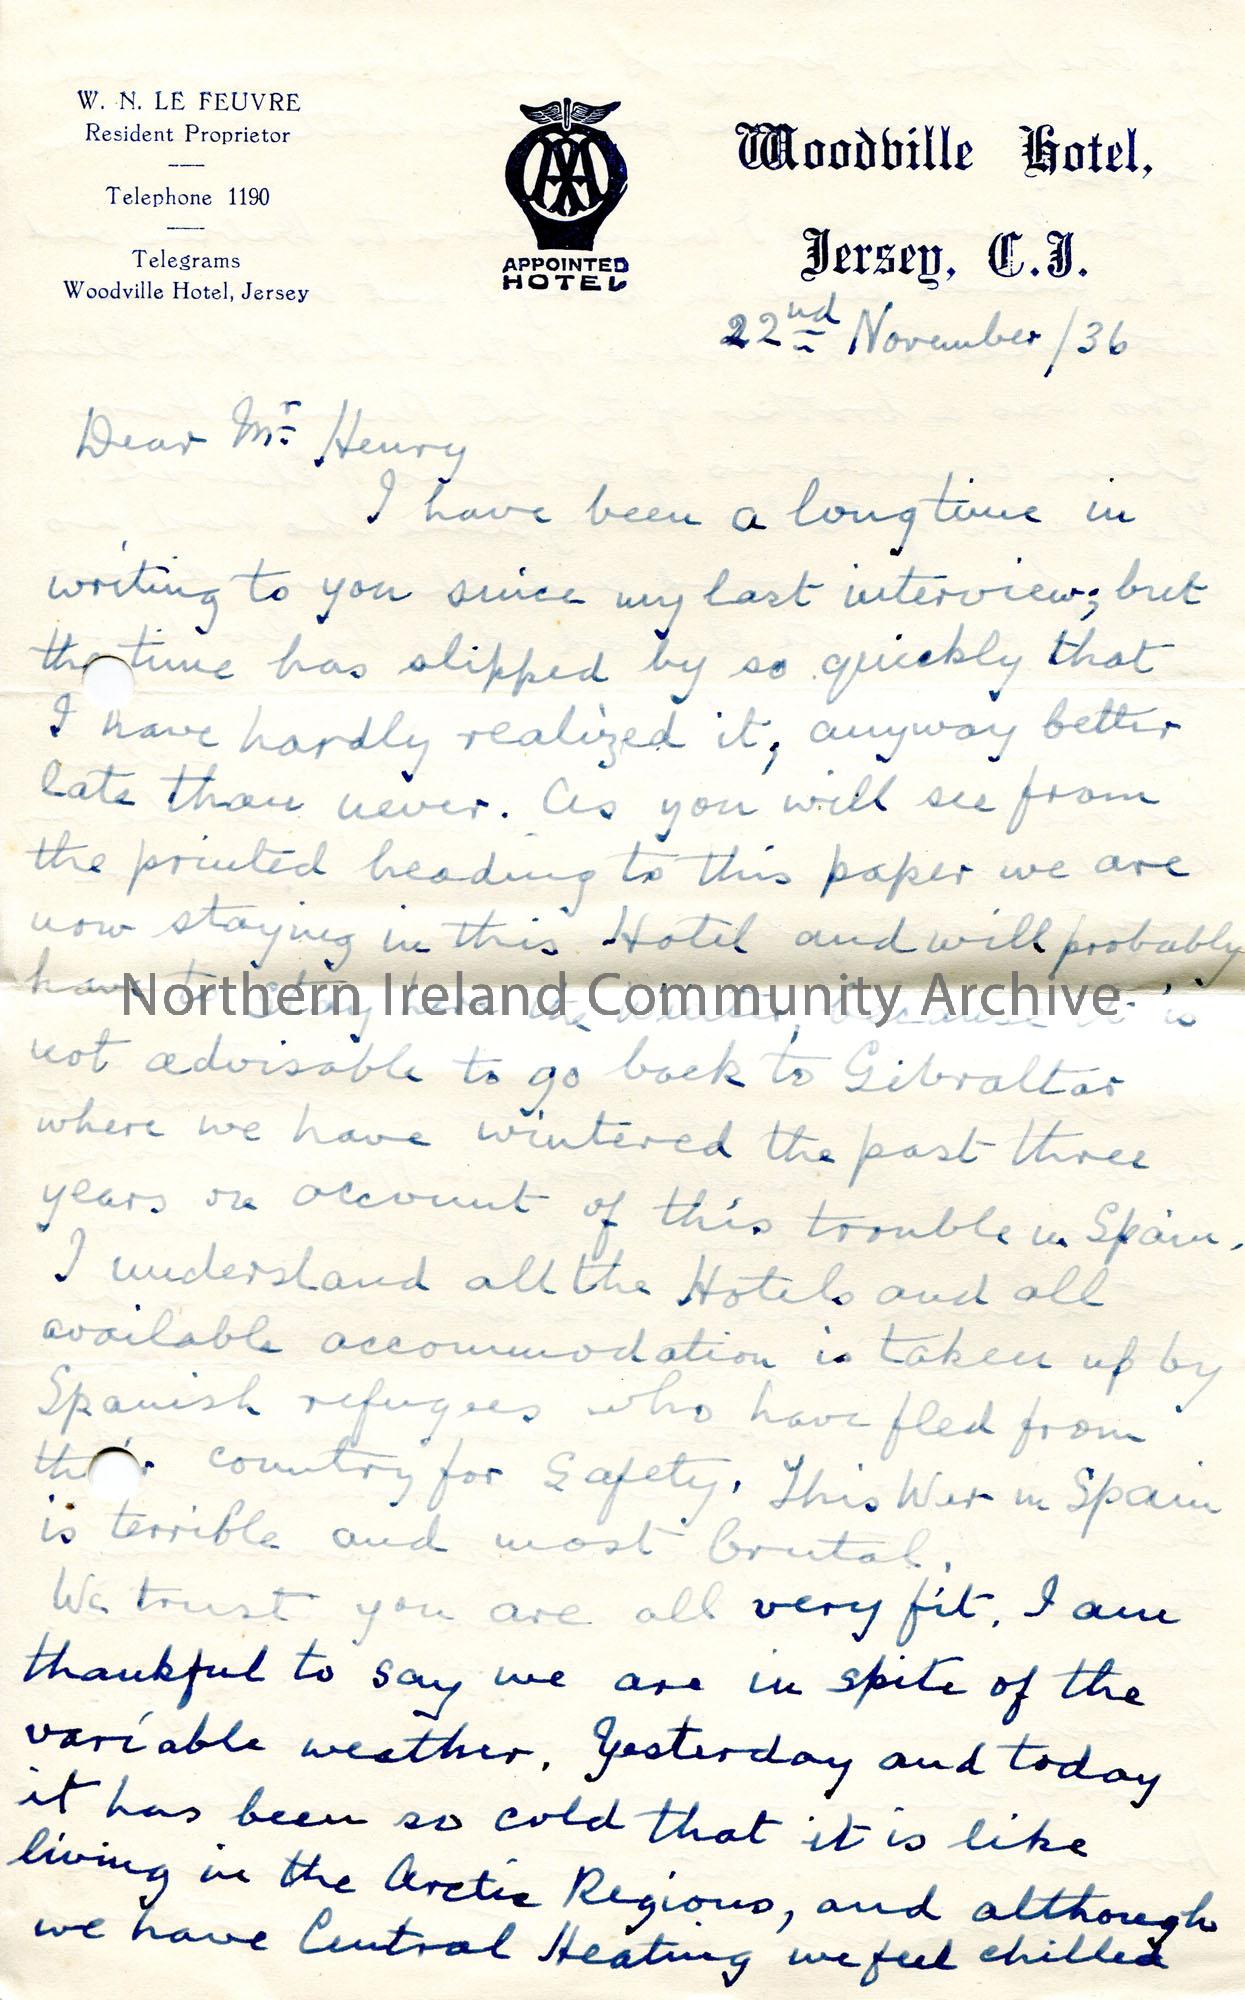 W. N. LE FEUVRE
Resident Proprietor
Telephone 1190
Telegrams
Woodville Hotel, Jersey
AA
APPOINTED
HOTEL
Woodville Hotel,
Jersey, C.I.
22nd November /36
Dear Mr Henry
I have been a long time in
writing to you since my last interview; but
the time has slipped by so quickly that
I have hardly realized it; anyway better
late than never. As you will see from
the printed heading to this paper we are
now staying in this Hotel and will probably
have to stay here the Winter, because it is
Northern Ireland Community Archive
not advisable to go back to Gibraltar
where we have wintered the past three
years on account of this trouble in Spain.
I understand all the Hotels and all
available accommodation is taken up by
Spanish refugees who have fled from
their country for Safety. This War in Spain
is terrible and most brutal.
We trust you are all very fit. I am
thankful to say we are in spite of the
variable weather. Yesterday and today
it has been so cold that it is like
living in the Arctic Regions, and although
we have Central Heating we feel chilled